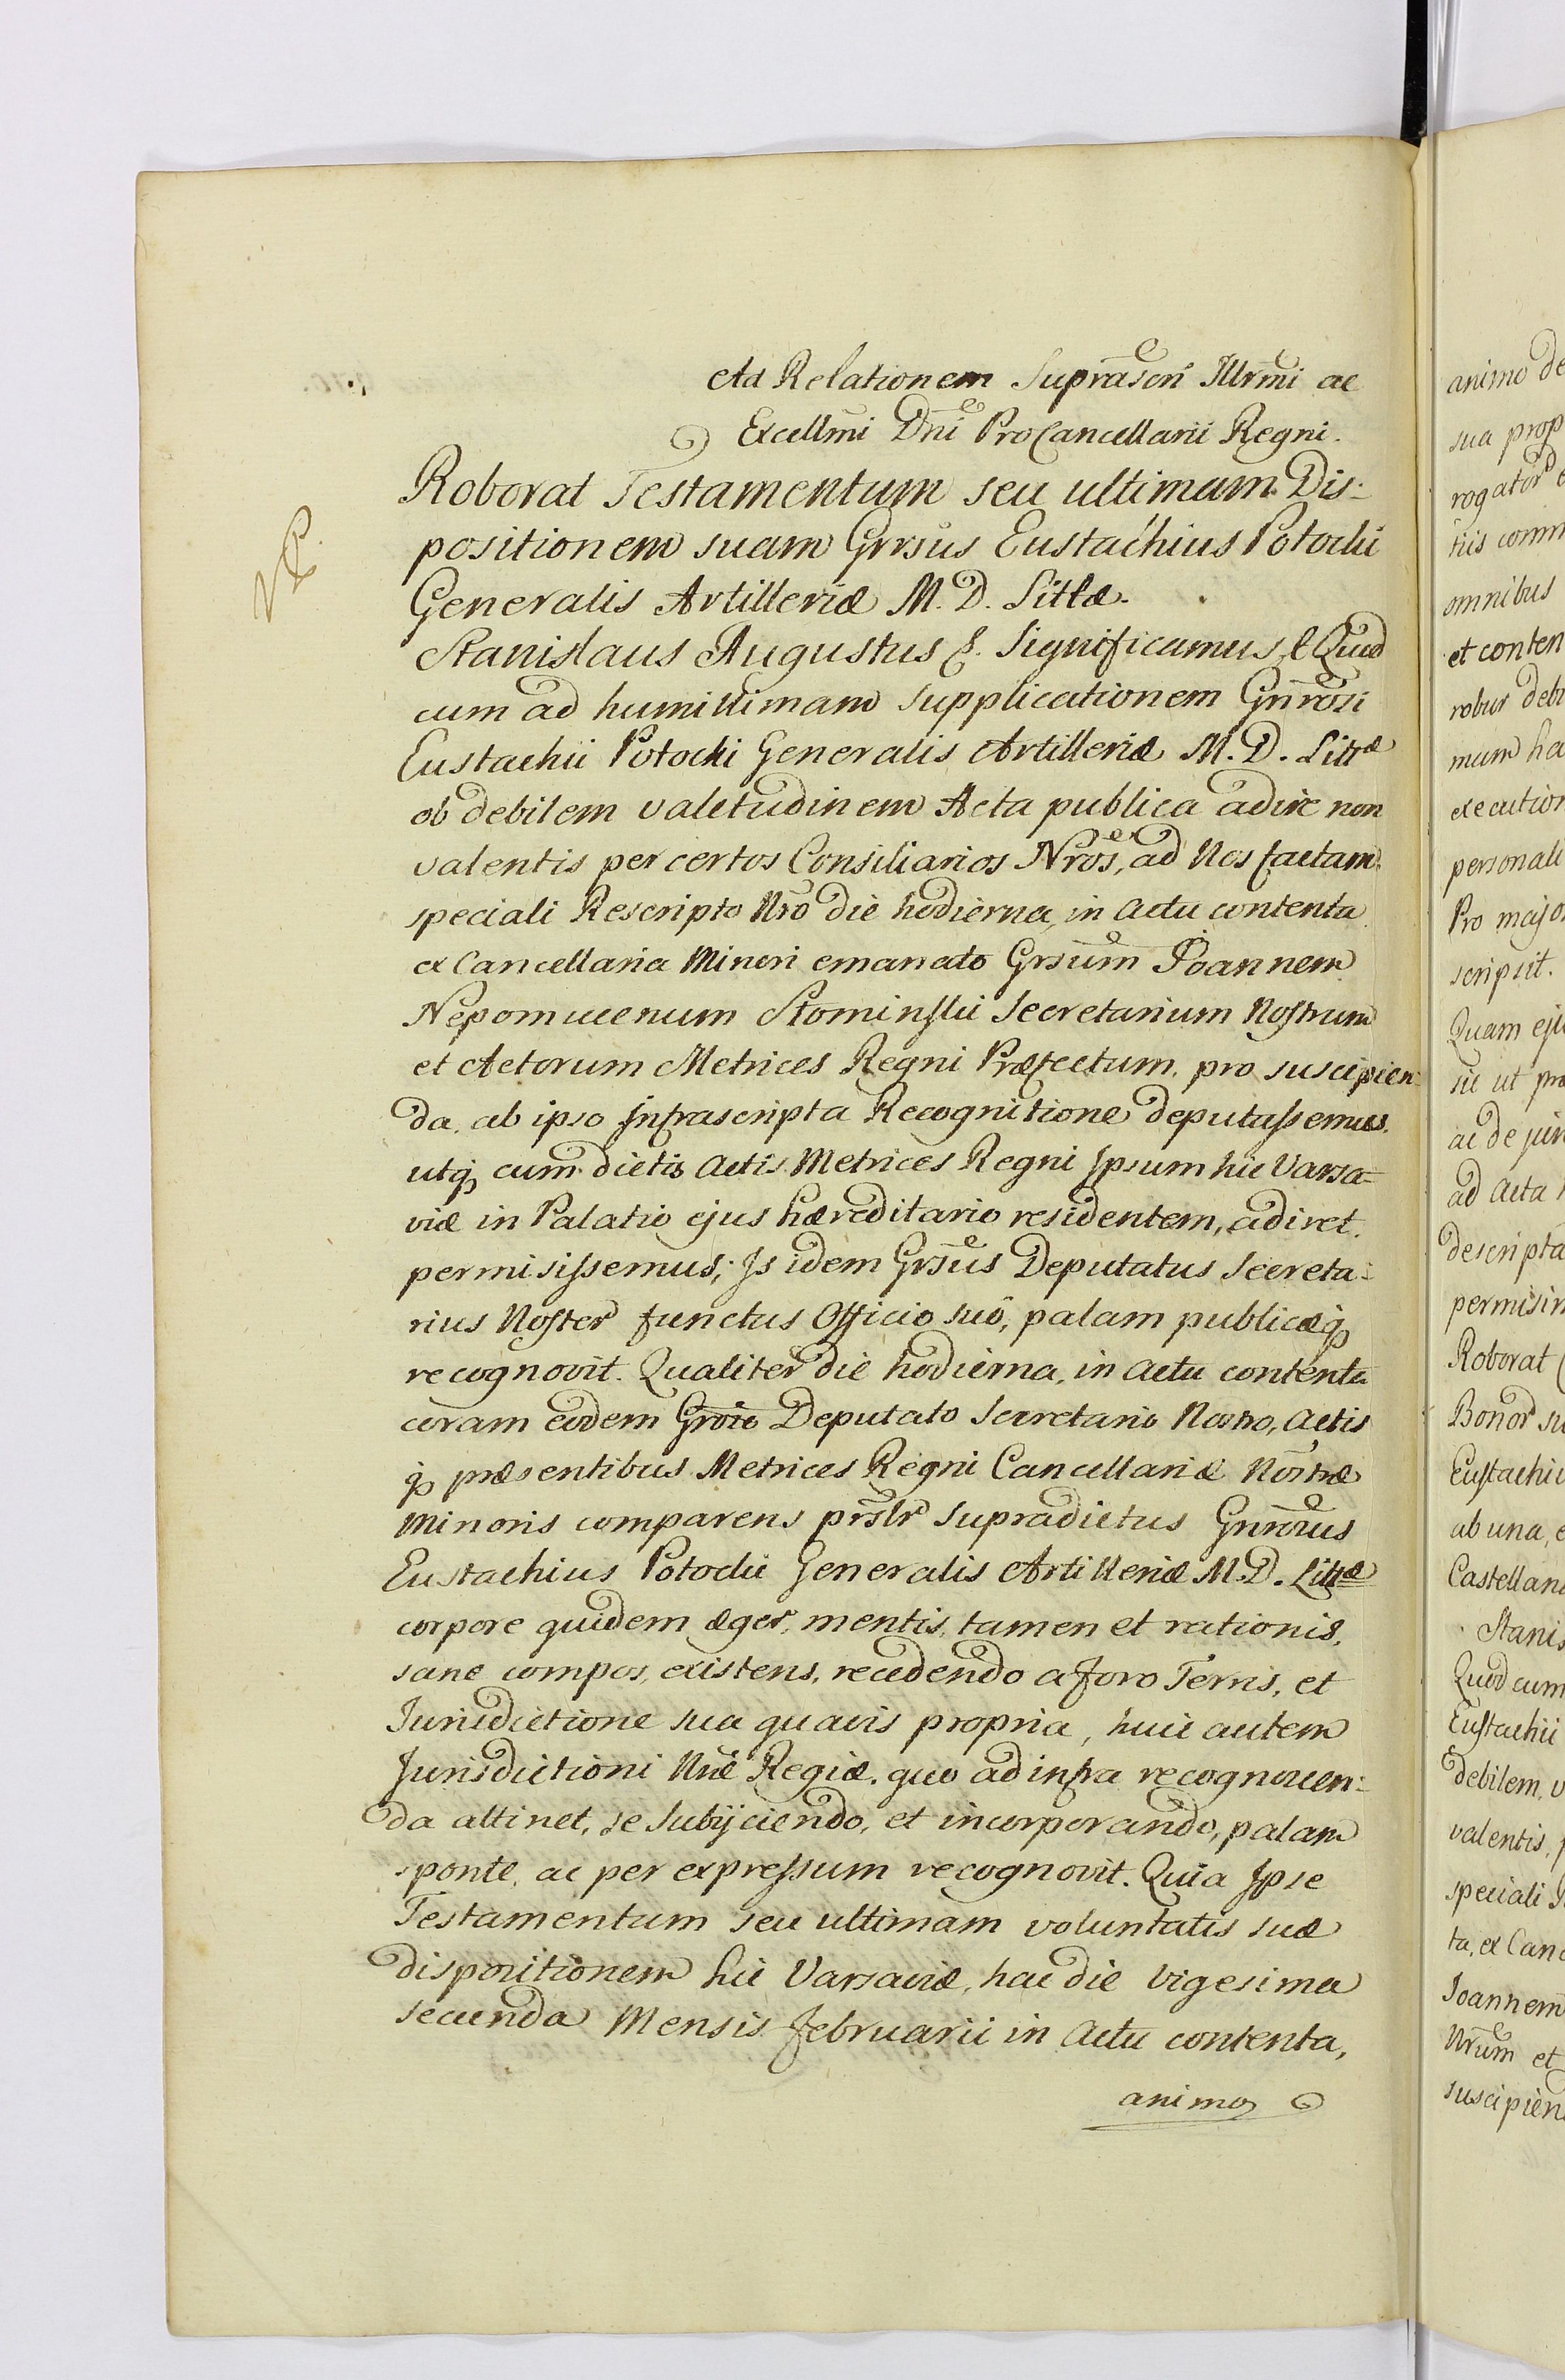 Ad Relationem Suprascri Illrmi ac
Excellmi Dni ProCancellarii Regni.
Roborat Testamentum seu ultimam Dis-
positionem suam Grrsus Eustachius Potocki
Generalis Artilleriæ M. D. Littæ.
Stanislaus Augustus &. Significamus &. Quod
cum ad humillimam supplicationem Gnrosi
Eustachii Potocki Generalis Artilleriæ M. D. Littæ
ob debilem valetudinem Acta publica adire non
valentis per certos Consiliarios Nros, ad Nos factam
speciali Rescripto Nro die hodierna, in actu contenta
ex Cancellaria Minori emanato Grsum Joannem
Nepomucenum Słominski Secretarium Nostrum
et Actorum Metrices Regni Præfectum, pro suscipien-
da ab ipso Infrascripta Recognitione deputassemus,
utq cum dictis Actis Metrices Regni Ipsum hic Varsa-
viæ in Palatio ejus hæreditario residentem, adiret.
permisissemus; Is idem Grsus Deputatus Secreta-
rius Noster functus Officio suo, palam publicæq
recognovit. Qualiter die hodierna, in actu contenta
coram eodem Groso Deputato Secretario Nostro, Actis
q præsentibus Metrices Regni Cancellariæ Nostræ
Minoris comparens prslr supradictus Gnrosus
Eustachius Potocki Generalis Artilleriæ M. D. Littæ
corpore quidem æger, mentis, tamen et rationis,
sane compos, existens, recedendo a foro Terris, et
Jurisdictione sua quavis propria, huic autem
Jurisdictioni Nræ Regiæ, quo ad infra recognoscen-
da attinet, se subijciendo, et incorporando, palam
sponte, ac per expressum recognovit. Quia Ipse
Testamentum seu ultimam voluntatis suæ
dispositionem hic Varsaviæ, hac die vigesima
secunda Mensis Februarii in actu contenta,
animo
animo de
sua prop
rogator
tiis comm
omnibus
et conten
robur debi
mum ha
execution
personali
Pro major
scripsit.
Quam
sic ut
ac de jur
ad Acta
descripta
permisim
Roborat
Bonor su
Eustachi
ab una, e
Castellan
Stanis
Quod cum
Eustachii
debilem, v
valentis,
speciali
ta, ex Canc
Joannem
Nrum et
suscipien